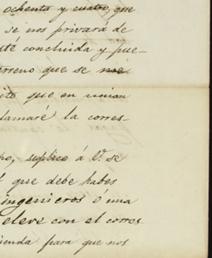 ochenta y cuatro, que
se nos privará de
esté concluida y pue-
terreno que se
que en union
clamaré la corres
suplico á V. se
que debe haber
ingenieros ó una
eleve con el corres
ienda para que nos